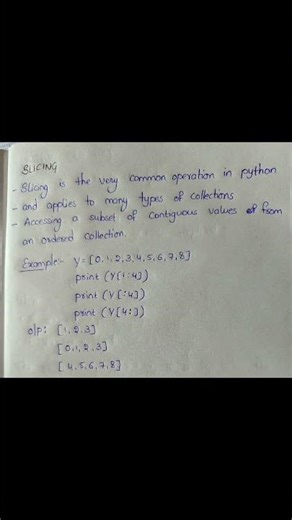 SLICING
- Slicing is the very common operation in python
- and applies to many types of collections
- Accessing a subset of contiguous values of from
an ordered collection.
Example:- y=[0,1,2,3,4,5,6,7,8]
print (Y[1:4])
print (Y[:4])
print (Y[4:])
o/p: [1,2,3]
[0,1,2,3]
[4,5,6,7,8]